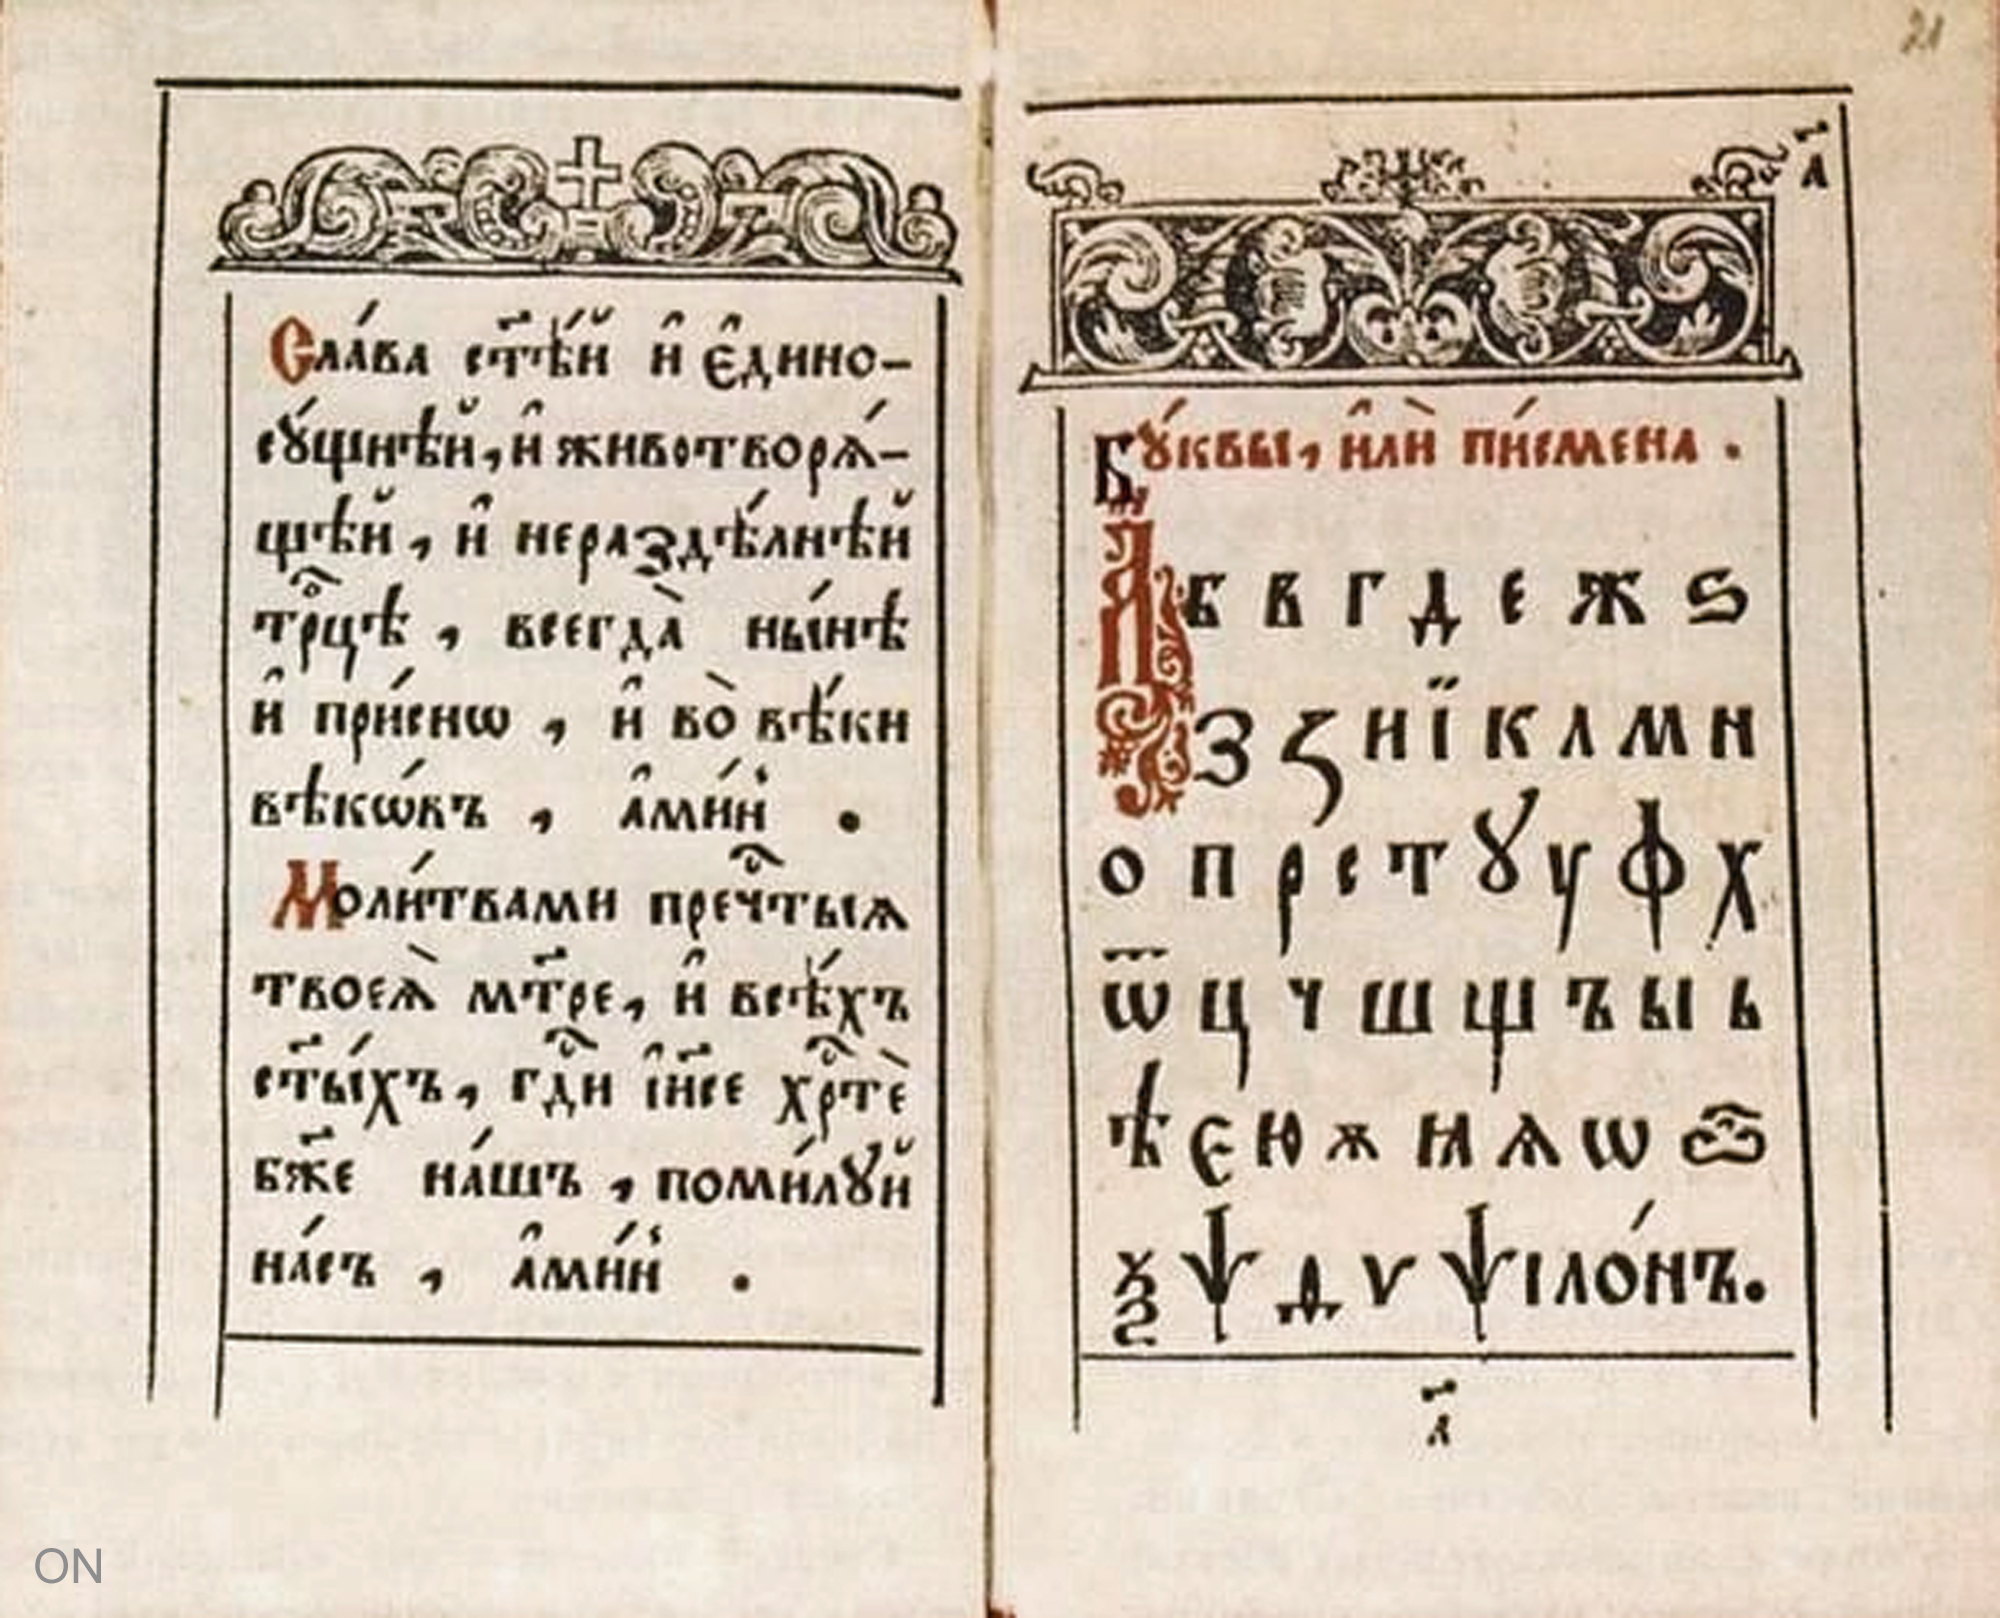 Сла́ва ст҃ѣ́й и҆ є҆дино-
сꙋ́щнѣй, и҆ животворѧ́-
щѣй, и҆ нераздѣ́лнѣй
трⷪ҇цѣ, всегда̀ ны́нѣ
и҆ при́снѡ, и҆ во̀ вѣ́ки
вѣкѡ́въ, а҆ми́нь.
Моли́твами пречⷭ҇тыѧ
твоеѧ̀ мт҃ре, и҆ всѣ́хъ
ст҃ы́хъ, гдⷭ҇и і҆и҃се хрⷭ҇тѐ
бж҃е на́шъ, поми́лꙋй
на́съ, а҆ми́нь.
21
а҃
Бꙋ́квы, и҆лѝ пи́смена.
А б в г д е ж ѕ
з ꙁ и ї к л м н
о п р с т ꙋ у ф х
ѿ ц ч ш щ ъ ы ь
ѣ є ю ѫ ꙗ ѧ ѡ ѽ
ѯ ѱ д ѵ ѱіло́нъ.
а҃
ON